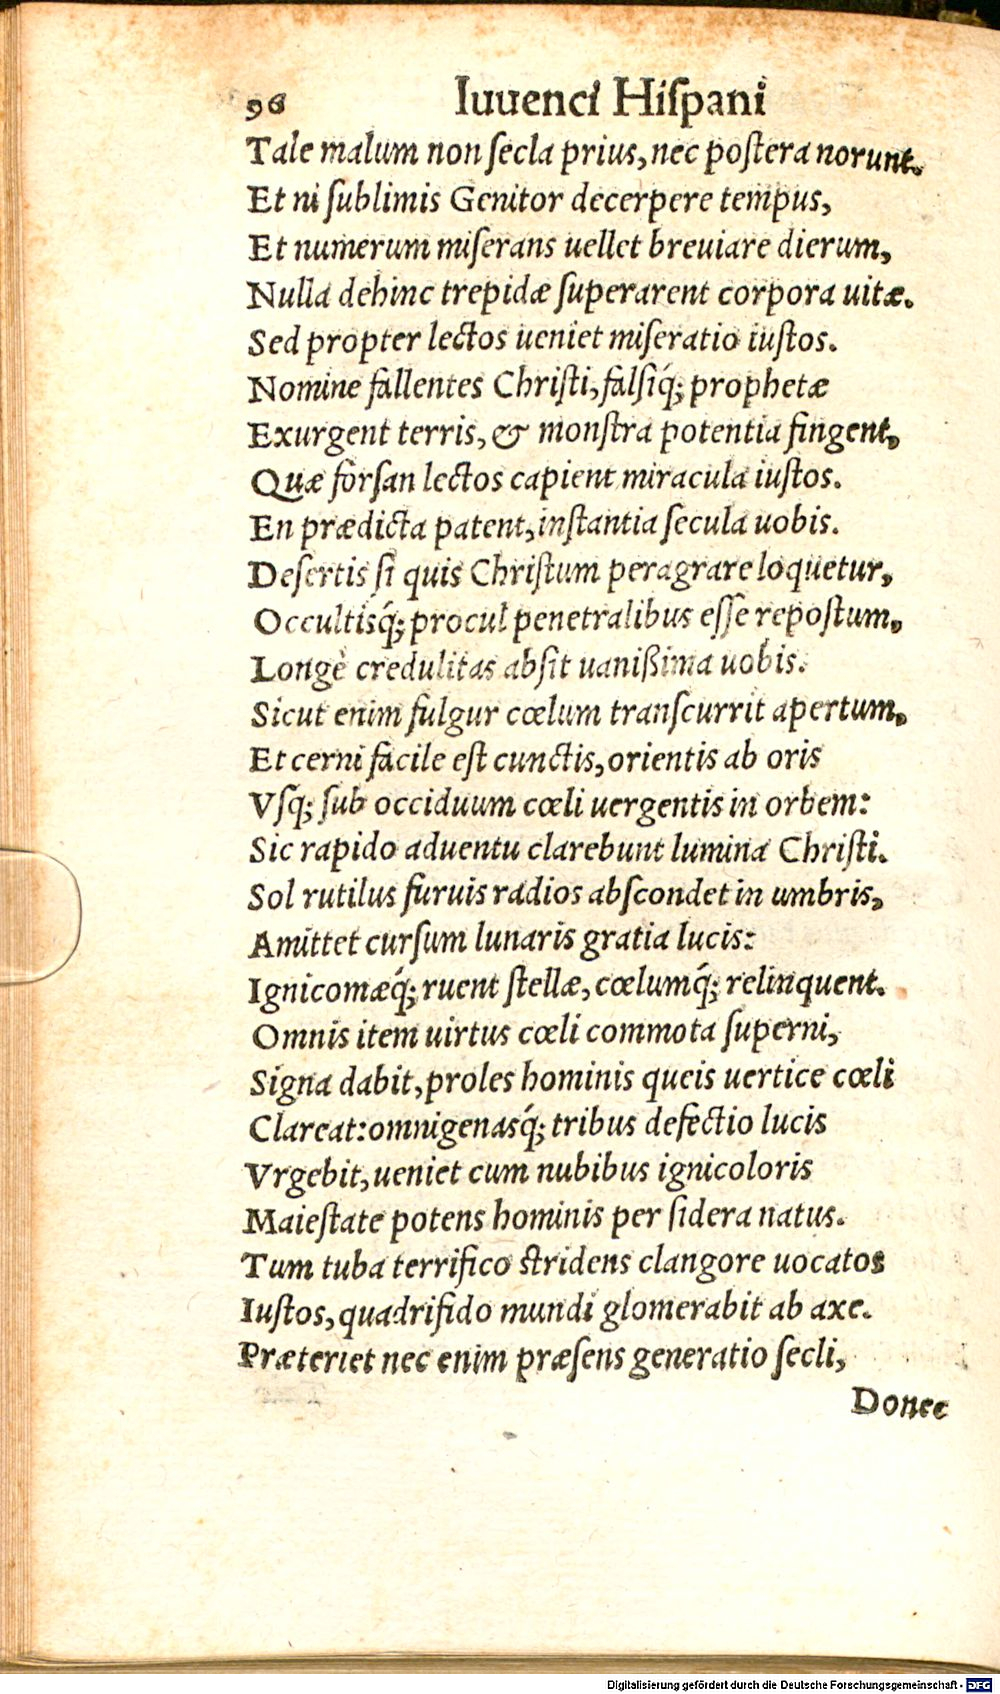 96 Iuuenci Hiſpani
Tale malum non ſecla prius, nec poſtera norunt.
Et ni ſublimis Genitor decerpere tempus,
Et numerum miſerans uellet breuiare dierum,
Nulla dehinc trepidæ ſuperarent corpora uitæ.
Sed propter lectos ueniet miſeratio iuſtos.
Nomine fallentes Chriſti, falſiq́; prophetæ
Exurgent terris, & monſtra potentia fingent,
Quæ forſan lectos capient miracula iuſtos.
En prædicta patent, inſtantia ſecula uobis.
Deſertis ſi quis Chriſtum peragrare loquetur,
Occultisq́; procul penetralibus eſſe repoſtum,
Longè credulitas abſit uanißima uobis.
Sicut enim fulgur cœlum tranſcurrit apertum,
Et cerni facile eſt cunctis, orientis ab oris
Vſq; ſub occiduum cœli uergentis in orbem:
Sic rapido aduentu clarebunt lumina Chriſti.
Sol rutilus furuis radios abſcondet in umbris,
Amittet curſum lunaris gratia lucis:
Ignicomæq́; ruent ſtellæ, cœlumq́; relinquent.
Omnis item uirtus cœli commota ſuperni,
Signa dabit, proles hominis queis uertice cœli
Clareat: omnigenasq́; tribus defectio lucis
Vrgebit, ueniet cum nubibus ignicoloris
Maieſtate potens hominis per ſidera natus.
Tum tuba terrifico ſtridens clangore uocatos
Iuſtos, quadrifido mundi glomerabit ab axe.
Præteriet nec enim præſens generatio ſecli,
Donec
Digitalisierung gefördert durch die Deutsche Forschungsgemeinschaft - DFG